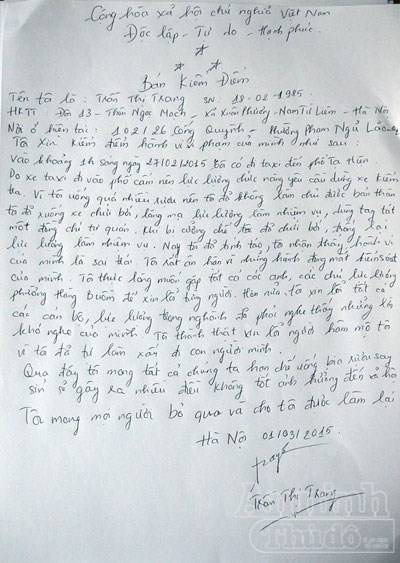 Cộng hòa xã hội chủ nghĩa Việt Nam
Độc lập - Tự do - Hạnh phúc.
Bản Kiểm Điểm
Tên tôi là: Trần Thị Trang SN: 18-02-1985.
HKTT: Đội 13 - Thôn Ngọc Mạch - Xã Xuân Phương - Nam Từ Liêm - Hà Nội
Nơi ở hiện tại: 102/26 Cống Quỳnh - Phường Phạm Ngũ Lão
Tôi xin kiểm điểm hành vi vi phạm của mình như sau:
Vào khoảng 1h sáng ngày 27/02/2015 tôi có đi taxi đến phố Tạ Hiện
Do xe taxi đi vào phố cấm nên lực lượng chức năng yêu cầu dừng xe kiểm
tra. Vì tôi uống quá nhiều rượu nên tôi đã không làm chủ được bản thân
tôi đã xuống xe chửi bới, lăng mạ lực lượng làm nhiệm vụ, dùng tay tát
một đồng chí tự quản. Khi bị cưỡng chế tôi đã chửi bới, chống lại
lực lượng làm nhiệm vụ. Nay tôi đã tỉnh táo, tôi nhận thấy hành vi
của mình là sai trái. Tôi rất ân hận vì những hành động mất kiểm soát
của mình. Tôi thực lòng muốn gặp tất cả các anh, các chú lực lượng
phường Hàng Buồm để xin lỗi từng người. Hơn nữa, tôi xin lỗi tất cả
các cán bộ, lực lượng trong nghành đã phải nghe thấy những lời
khó nghe của mình. Tôi thành thật xin lỗi người hâm mộ tôi
vì tôi đã tự làm xấu đi con người mình.
Qua đây tôi mong tất cả chúng ta hạn chế uống bia rượu say
sỉn sẽ gây ra nhiều điều không tốt ảnh hưởng đến xã hội
Tôi mong mọi người bỏ qua và cho tôi được làm lại
Hà Nội 01/03/2015.
Trang
Trần Thị Trang
An ninh
Thủ đô